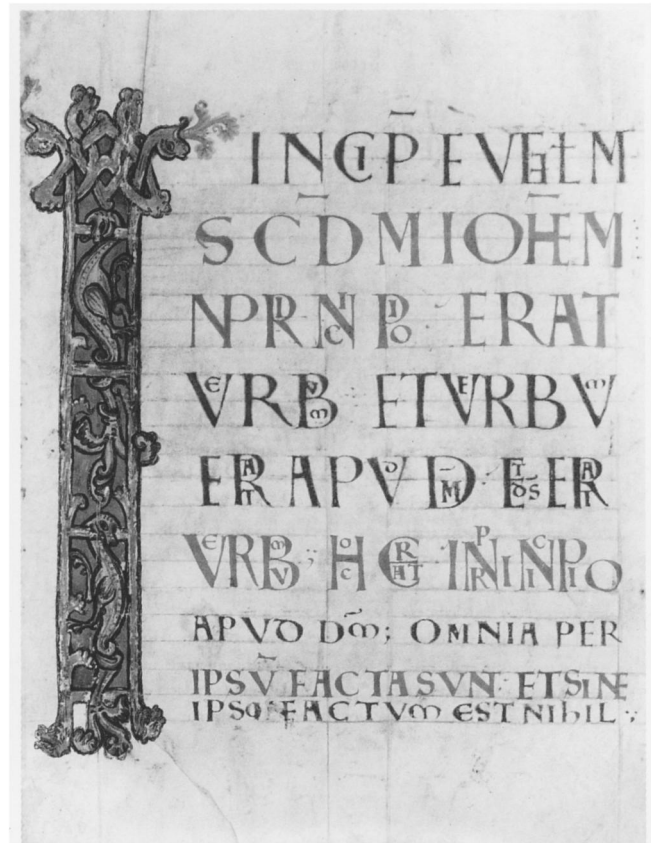 INCIP̄ EVGLM
SCD̄M IOHEM
NPRINCIPIO· ERAT
VERBVM ET VERBVM
ERAT APVD DM̄· ET DS̄ ERAT
VERBVM; HOC ERAT· IN PRINCIPIO
APVD DM̄; OMNIA PER
IPSV̄ FACTA SVN· ET SINE
IPSO· FACTVM EST NIhIL·,